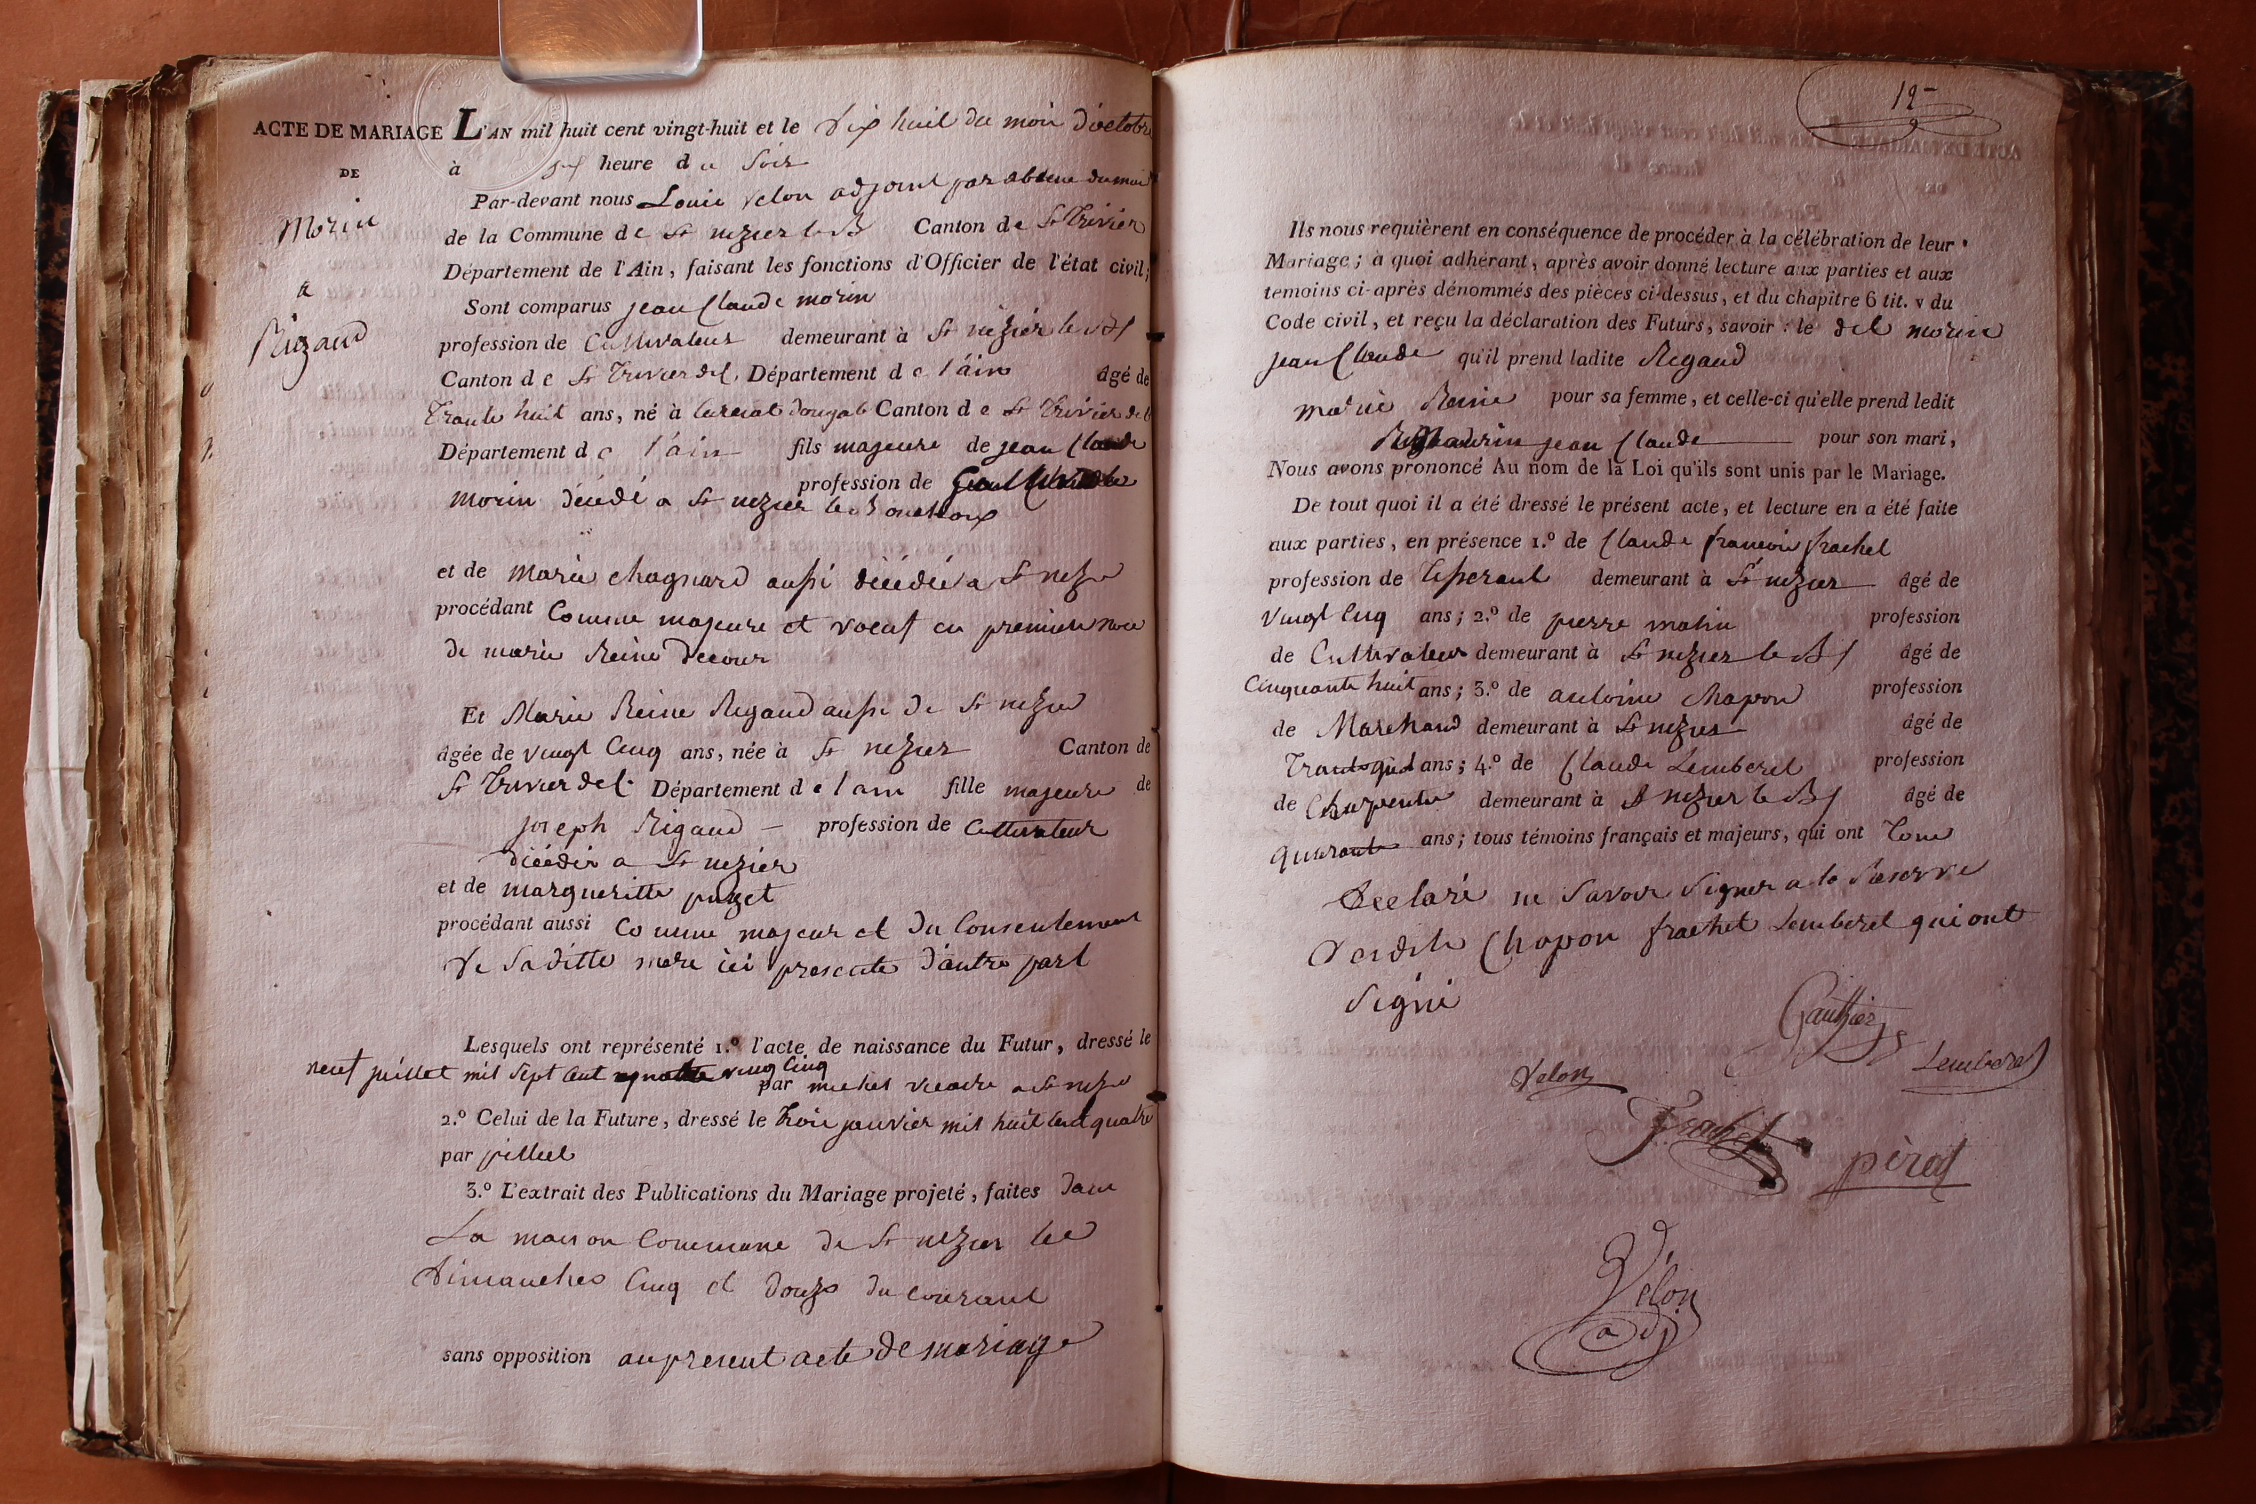 ACTE DE MARIAGE L'AN mil huit cent vingt-huit et le dix huit du mois d'octobre
DE
à heure du soir
Par-devant nous Louis velon adjoint par absence du maire
Morin
de la Commune de St nizier le B Canton de St Trivier
Département de l'Ain, faisant les fonctions d'Officier de l'état civil;
a
Sont comparus jean Claude morin
Rigaud
profession de Cultivateur demeurant à St nizier le B
Canton de St Trivier de C. Département de l'ain âgé de
Trante huit ans, né à Canton de St Trivier de C
Département de l'ain fils majeure de jean Claude
profession de
morin décédé a St nizier le Bouchoux
et de marie chagnard aussi décédée a St nizie
procédant Comme majeure et voeuf en premiere noce
de marie Reine Decour
Et Marie Reine Rigaud aussi de St nizie
âgée de vingt Cinq ans, née à St nizier Canton de
St Trivier de C. Département de l'ain fille majeure de
joseph Rigaud — profession de Cultivateur
décédé a St nizier
et de margueritte puget
procédant aussi Comme majeur et du Consentement
de Saditte mere ici presente d'autre part
Lesquels ont représenté 1.º l'acte de naissance du Futur, dressé le
neuf juillet mil sept Cent vingt Cinq
par michel vicaire a St nizie
2.º Celui de la Future, dressé le trois janvier mil huit Cent quatre
par pilliet
3.º L'extrait des Publications du Mariage projeté, faites dans
La maison Commune de St nizier les
Dimanches Cinq et douze du courant
sans opposition au present acte de mariage
12
Ils nous requièrent en conséquence de procéder à la célébration de leur
Mariage; à quoi adhérant, après avoir donné lecture aux parties et aux
temoins ci-après dénommés des pièces ci-dessus, et du chapitre 6 tit. v du
Code civil, et reçu la déclaration des Futurs, savoir: le dit morin
jean Claude qu'il prend ladite Rigaud
marie Reine pour sa femme, et celle-ci qu'elle prend ledit
morin jean Claude pour son mari,
Nous avons prononcé Au nom de la Loi qu'ils sont unis par le Mariage.
De tout quoi il a été dressé le présent acte, et lecture en a été faite
aux parties, en présence 1.º de Claude francois frachet
profession de Tisserant demeurant à St nizier âgé de
vingt Cinq ans; 2.º de pierre profession
de Cultivateur demeurant à St nizier le B âgé de
Cinquante huit ans; 3.º de antoine Chapon profession
de Marchand demeurant à St nizier âgé de
ans; 4.º de Claude Lemberel profession
de Charpentier demeurant à St nizier le B âgé de
quarante ans; tous témoins français et majeurs, qui ont Tous
Declaré ne savoir signer a la Reserve
Chapon frachet Lemberel qui ont
Signé
Gauthier
Velon
Lemberel
Frachet
Vélon
adj